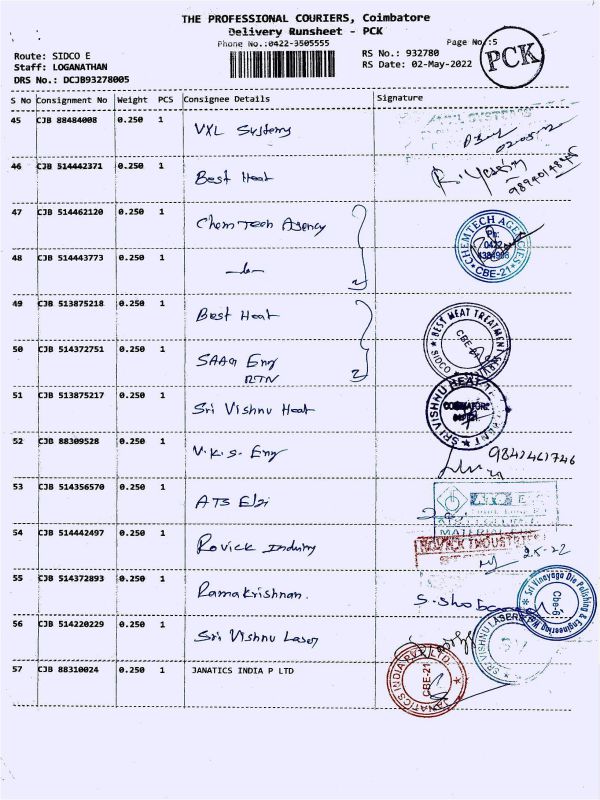 THE PROFESSIONAL COURIERS, Coimbatore
Delivery Runsheet - PCK
Phone No.:0422-3505555
Page No.:5
PCK
Route: SIDCO E
Staff: LOGANATHAN
DRS No.: DCJB93278005
RS No.: 932780
RS Date: 02-May-2022
S No Consignment No Weight PCS Consignee Details Signature
45 CJB 88484008 0.250 1 VXL Systems
46 CJB 514442371 0.250 1 Best Heat
47 CJB 514462120 0.250 1 Chem Tech Agency
CHEMTECH AGENCIES Ph: 0422 CBE-21
48 CJB 514443773 0.250 1
49 CJB 513875218 0.250 1 Best Heat
BEST HEAT TREATMENT SIDCO
50 CJB 514372751 0.250 1 SAAQ Eng
RTN
51 CJB 513875217 0.250 1 Sri Vishnu Heat
SRI VISHNU HEAT TREATMENT COIMBATORE
52 CJB 88309528 0.250 1 V.K.S. Eng
53 CJB 514356570 0.250 1 ATS Elgi
MATERIAL
54 CJB 514442497 0.250 1 Rovick Industry
ROVICK INDUSTRIES
2-5-22
55 CJB 514372893 0.250 1 Ramakrishnan.
Sri Vinayaga Die Polishing & Engineering Works Cbe-6
56 CJB 514220229 0.250 1 Sri Vishnu Laser
SRI VISHNU LASERS
57 CJB 88310024 0.250 1 JANATICS INDIA P LTD
JANATICS INDIA PVT LTD CBE-21